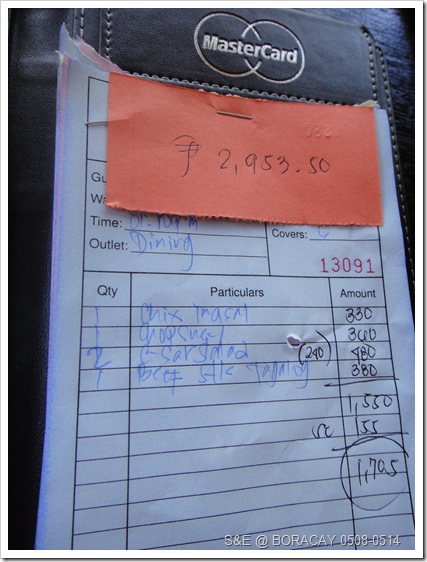 MasterCard
₱ 2,953.50
Gu
Wa
Time:
Outlet: Dining
Covers:
13091
Qty Particulars Amount
1 Chix Inasal 330
1 Chopsuey 360
2 C-sar salad (240) 480
1 Beef stk Tagalog 380
1,550
sc 155
1,705
S&E @ BORACAY 0508-0514